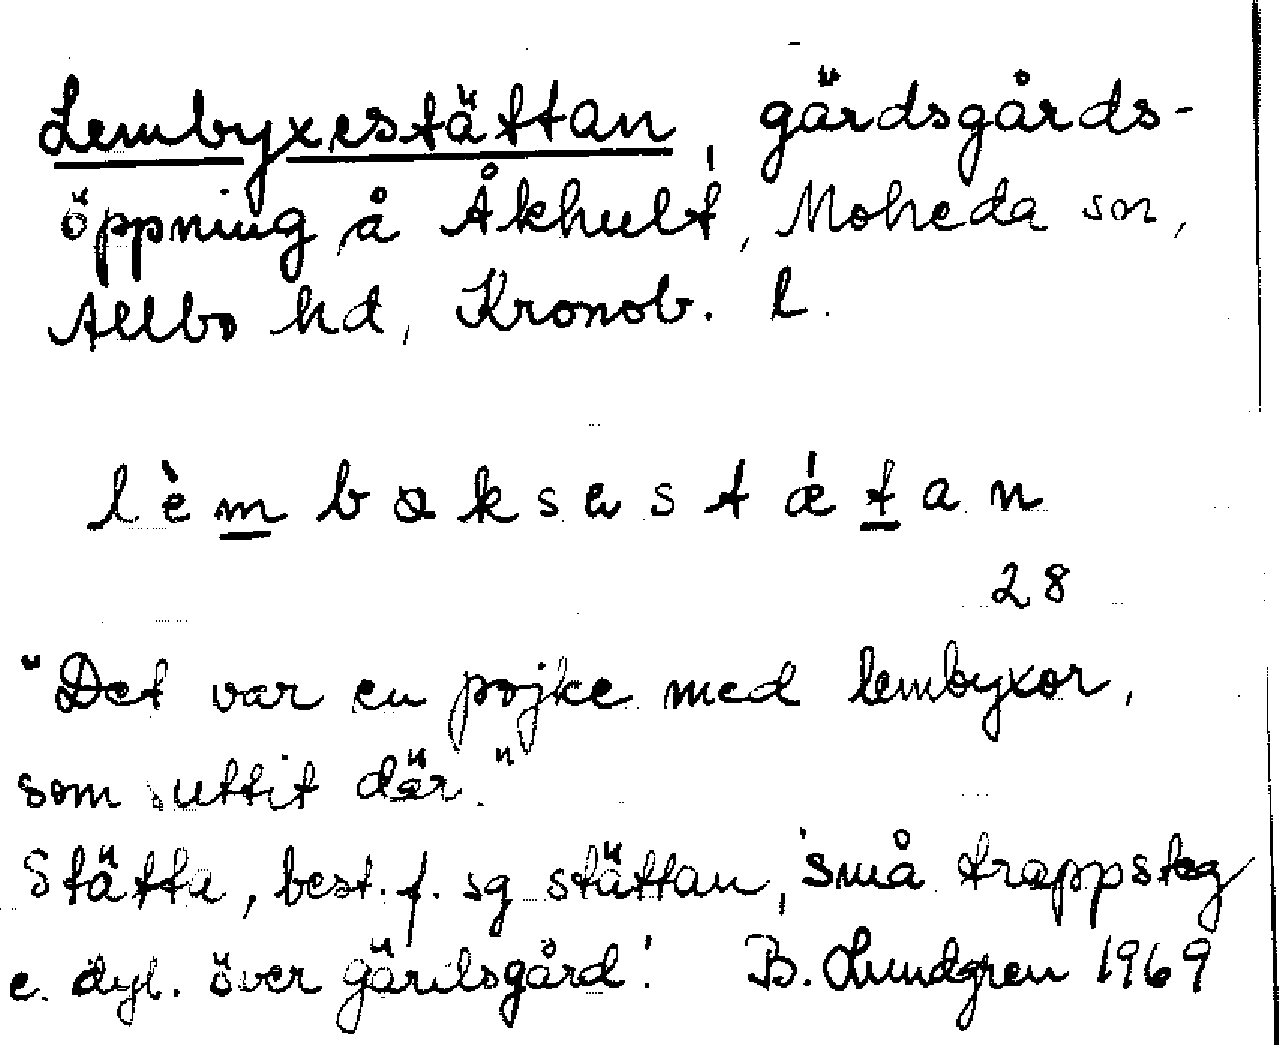 Lembyxestättan, gärdsgårds-
öppning å Åkhult, Moheda sn,
Allbo hd, Kronob. l.
lèmbøksestǽtan
28
"Det var en pojke med lembyxor,
som suttit där."
Stätta, best. f. sg stättan, 'små trappsteg
e. dyl. över gärdsgård'. B. Lundgren 1969